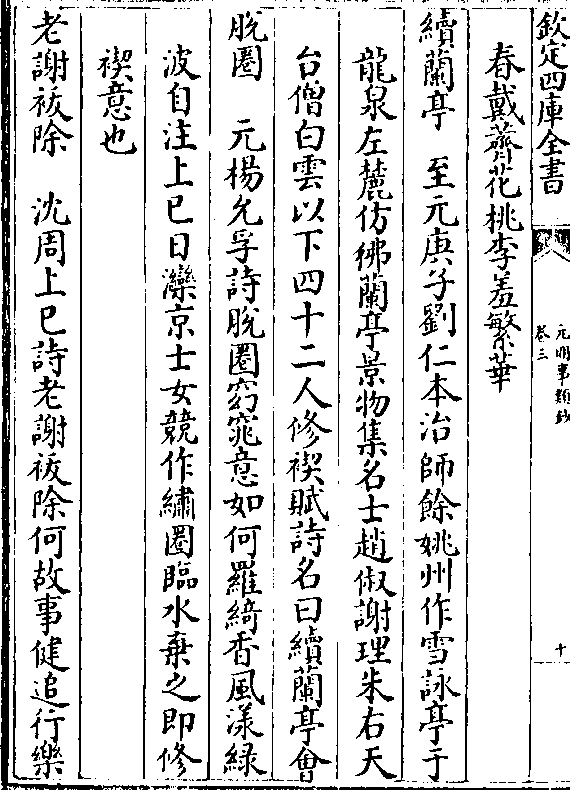 欽定四庫全書
元明事類鈔
卷三
十
春戴薺花桃李羞繁華
續蘭亭　至元庚子劉仁本治師餘姚州作雪詠亭于
龍泉左麓仿彿蘭亭景物集名士趙俶謝理朱右天
台僧白雲以下四十二人修禊賦詩名曰續蘭亭會
脫圈　元楊允孚詩脫圈窈窕意如何羅綺香風漾綠
波自注上巳日灤京士女競作繡圈臨水棄之即修
禊意也
老謝祓除　沈周上巳詩老謝祓除何故事健追行樂